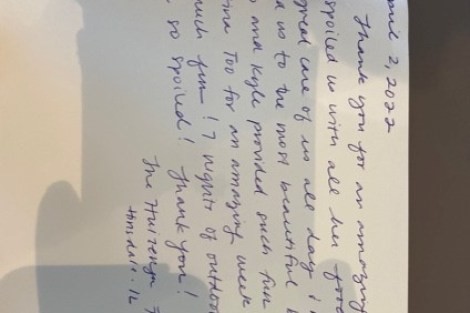 June 2, 2022
Thank you for an amazing
spoiled us with all her food
care of us all day
us to the most beautiful
and Kyle provided such fun
too for an amazing week
much fun! 7 nights of outdoor
so spoiled! Thank you!
The Huizenga
Hinsdale, IL